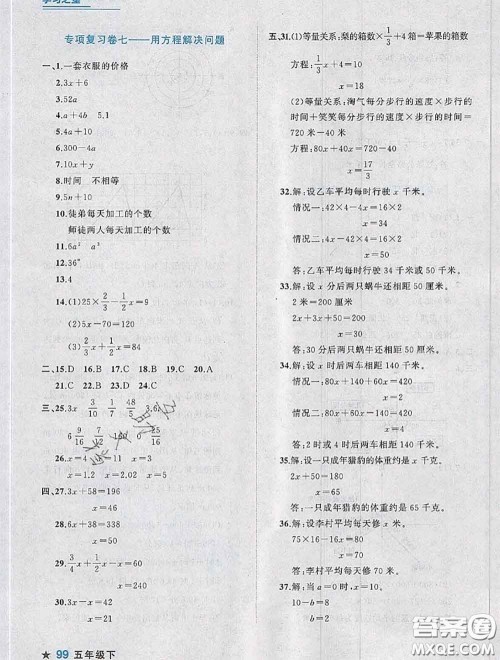 专项复习卷七——用方程解决问题
一、1.一套衣服的价格
2.8a+b
3.52a
4.a+4b 5.1
6.300-4a
7.10x+y
8.时间 不相等
9.5n+10
10.徒弟每天加工的个数
师徒两人每天加工的个数
11.6a² a³
12.36°
13.4
14.(1)25×2/3-1/2x=9
(2)5x-5=70
(3)2/3x+1/2x=84
二、15.D 16.B 17.C 18.B 19.C 20.A
21.C 22.B 23.C 24.D
三、25.3x 3/10 1/7 48/5
26.x=4 x=3
四、27.3x+58=196
x=46
28.2x-6=94
x=50
29.3/4x+1/3x=
x=240
30.3x-x=
x=
五、31.(1)等量关系:梨的箱数×1/3+4箱=苹果的箱数
方程:1/3x+4=10
x=18
(2)等量关系:淘气每分步行的速度×步行的时
间+笑笑每分步行的速度×步行的时间=
720-40米
方程:80x+40x=720-40
x=17/3
32.解:设乙车平均每时行驶x千米。
情况一:42×4-4x=16×2
x=34
情况二:4x-42×4=16×2
x=50
答:乙车平均每时行驶34千米或50千米。
33.解:设x分后两只蜗牛还相距50厘米。
2米=200厘米
2x+3x+50=200
x=30
答:30分后两只蜗牛还相距50厘米。
34.解:情况一:设x时后两车相距60千米。
80x+140+60=420
x=2
情况二:设x时后两车相距60千米。
80x+140x-60=420
答:2时后两车相距60千米。
35.解:设一只成年猎豹的体重约是x千克。
x=65
答:一只成年猎豹的体重约是65千克。
36.解:设李村平均每天修x米。
75×16-8x=
x=
答:李村平均每天修
37.解:当a=0时,
10-b=8
b=2
★ 99 五年级下
答案圈
MXQE.COM